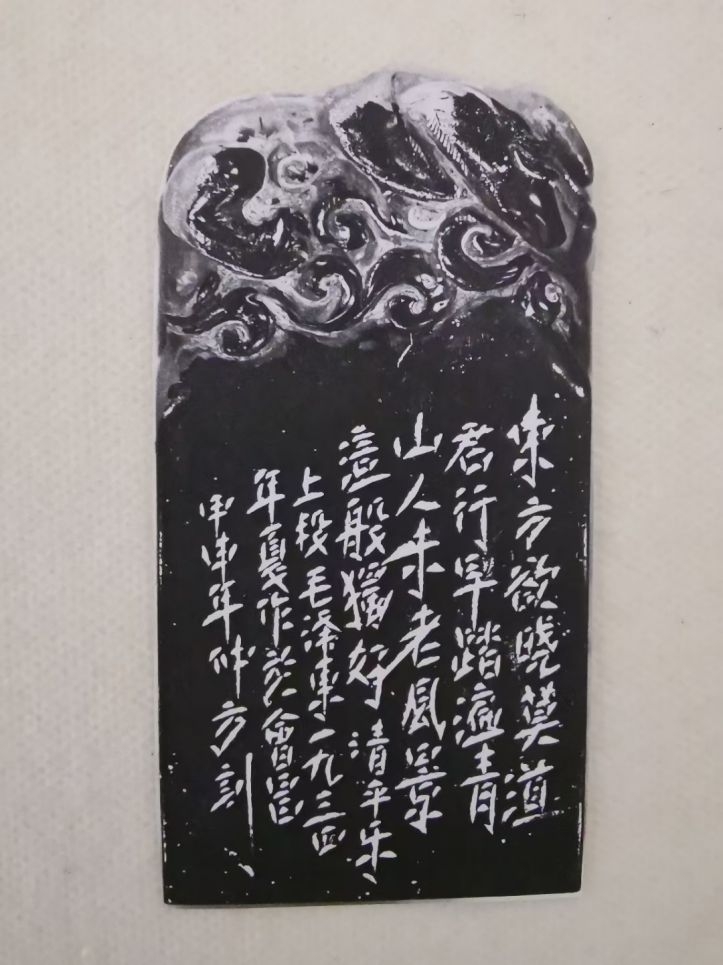 東方欲晓莫道
君行早踏遍青
山人未老風景
這般獨好 清平乐
上段毛泽東一九三四
年夏作於會昌
甲申年仲方刻